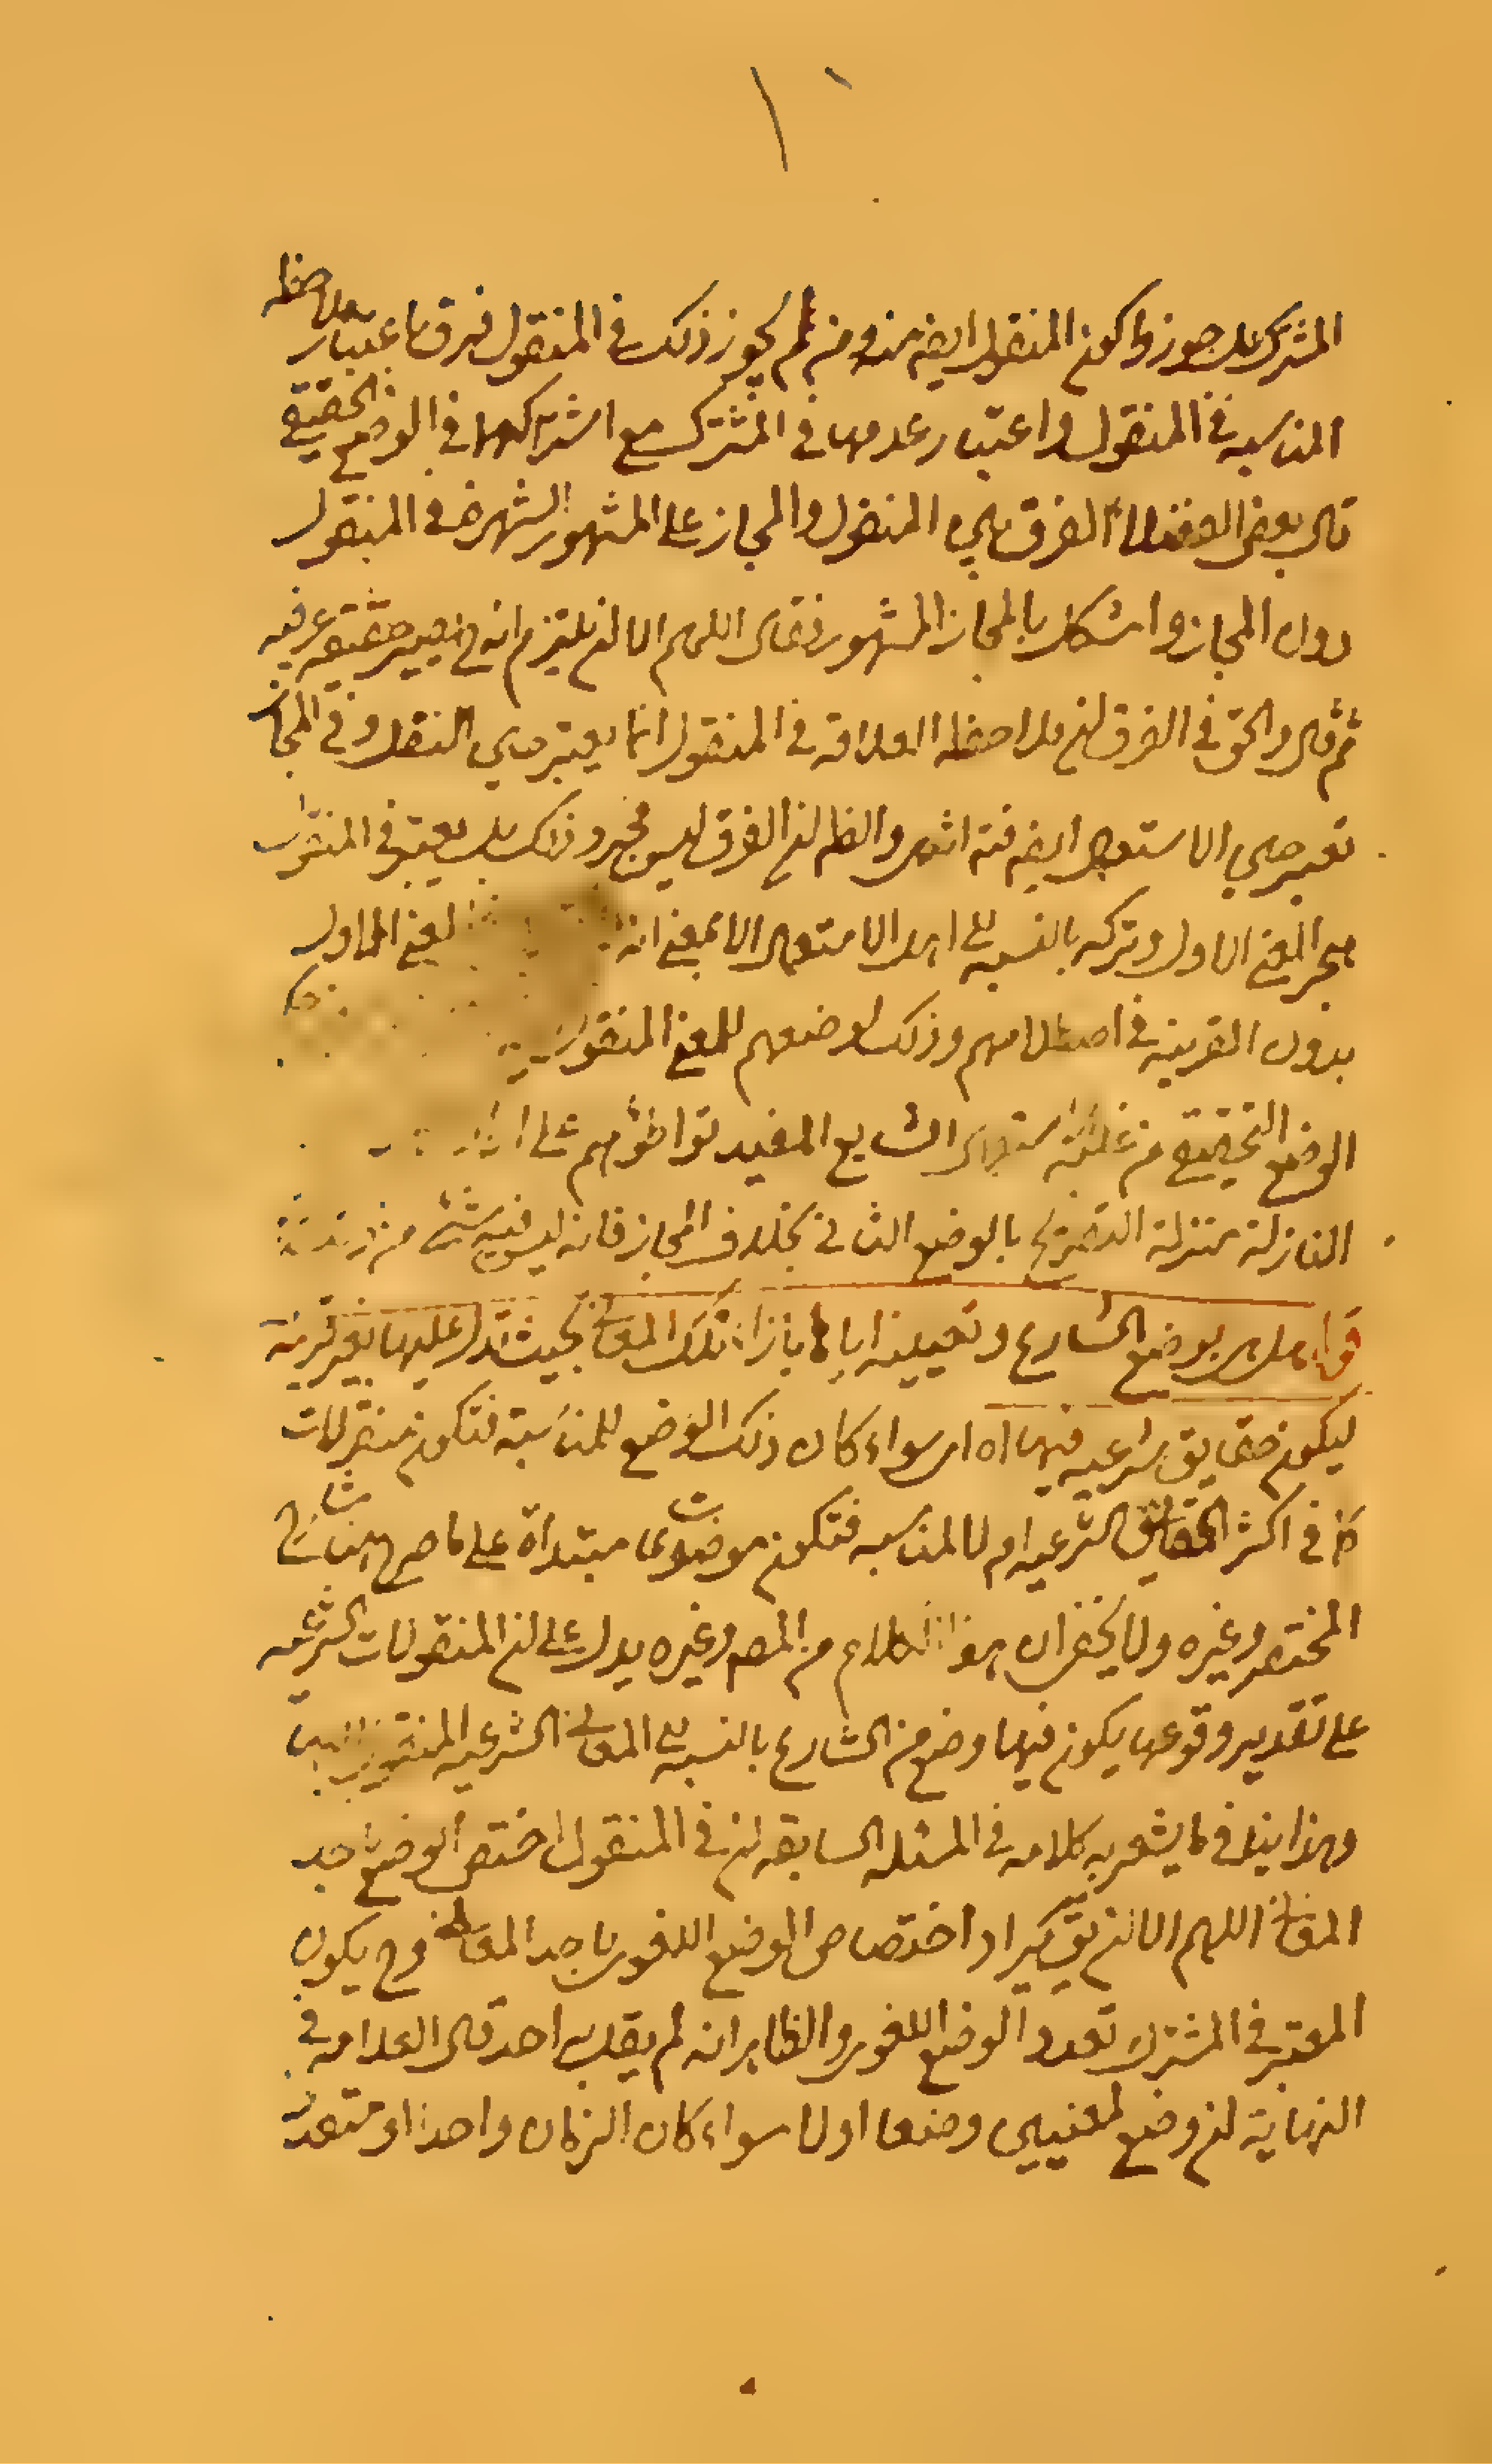 ١٠
المشترك بل جوزوا كون المنقول ايضه منه ومن لم يجوز ذلك في المنقول فرق باعتبار ملاحظه
المناسبه في المنقول واعتبار عدمها في المشترك مع اشتراكهما في الوضع الحقيقي
قال بعض الفضلاء الفرق بين المنقول والمجاز على المشهور الشهره في المنقول
دون المجاز واشكل بالمجاز المشهور فقال اللهم الا ان يلتزم انه ح يصير حقيقه عرفيه
ثم قال والحق في الفرق ان ملاحظه العلاقه في المنقول انما يعتبر حين النقل وفي المجاز
تعتبر حين الاستعمال ايضه فته انتهى والظ ان الفرق ليس بمجرد ذلك بل يعتبر في المنقول
هجر المعنى الاول وتركه بالنسبه الى اهل الاستعمال الا بمعنى انه لمعنى الاول
بدون القرينه في اصطلاحهم وذلك لوضعهم للمعنى المنقول
الوضع التحقيقي من غلبة استعمال الشايع المفيد تواطؤهم على
النازلة منزلة التصريح بالوضع الثاني بخلاف المجاز فانه ليس فيه شئ من
قوله هل هو بوضع الشارع وتعيينه اياها بازاء تلك المعاني بحيث تدل عليها بغير قرينة
ليكون حقايق شرعيه فيها اه اى سواء كان ذلك الوضع للمناسبة فتكون منقولات
كما في اكثر الحقايق الشرعيه ام لا لمناسبه فتكون موضوعات مبتدأة على ما صرح به شارح
المختصر وغيره ولا يخفى ان هذا الكلام من المصه وغيره يدل على ان المنقولات الشرعيه
على تقدير وقوعها يكون فيها وضع من الشارع بالنسبه الى المعاني الشرعيه المنقول اليها
وهذا ينافي ما يشعر به كلامه في المسئله السابقه ان في المنقول اختص الوضع باحد
المعاني اللهم الا ان يق يراد اختصاص الوضع اللغوى باحد المعاني وح يكون
المعتبر في المشترك تعدد الوضع اللغوى والظاهر انه لم يقل به احد قال العلامه في
النهاية ان وضع لمعنيين وضعا اولا سواء كان الزمان واحدا او متعددا